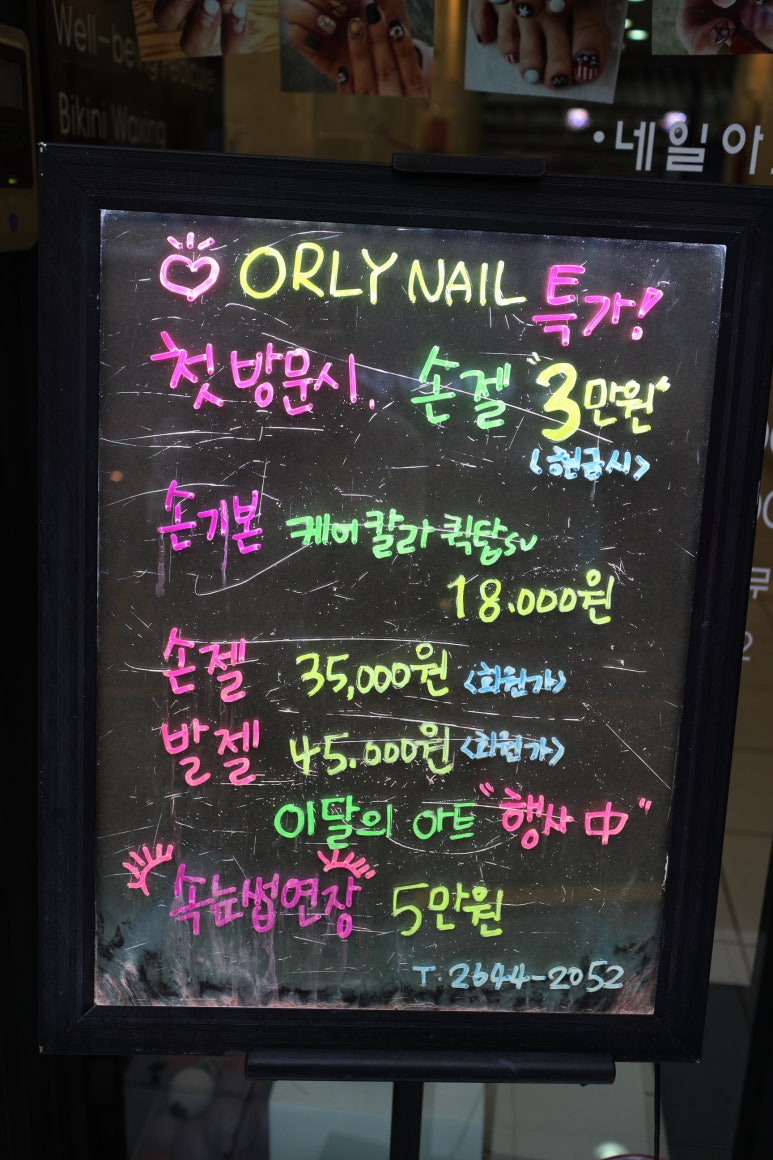 Well-being Pedicure
Bikini Waxing
•네일아
ORLY NAIL 특가!
첫 방문시, 손젤 "3만원"
<현금시>
손기본 케어칼라퀵탑su
18.000원
손젤 35,000원 <회원가>
발젤 45.000원 <회원가>
이달의 아트 "행사中"
속눈썹연장 5만원
T. 2644-2052
무
2